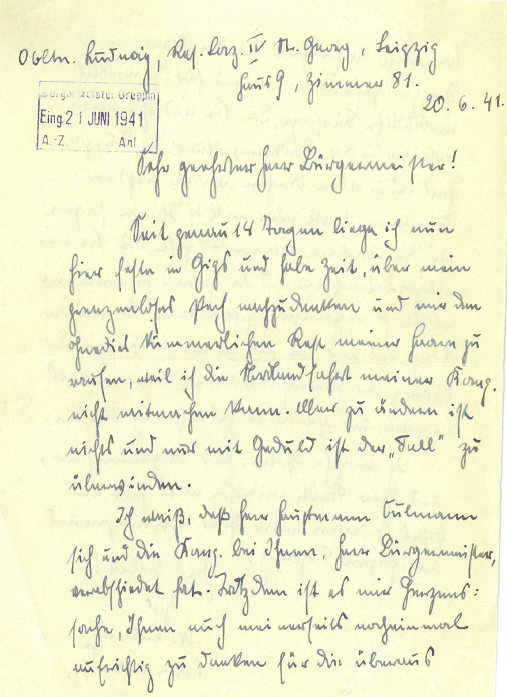 Obltn. Ludwig, Res. Laz. IV St. Georg, Leipzig
Haus 9, Zimmer 81.
20.6.41.
Bürgermeister Greppin
Eing. 21 JUNI 1941
A.-Z. Anl.
Sehr geehrter Herr Bürgermeister!
Seit genau 14 Tagen liege ich nun
hier feste in Gips und habe Zeit, über mein
grenzenloses Pech nachzudenken und mir den
ohnedies kümmerlichen Rest meiner Haare zu
raufen, weil ich die Nordlandfahrt meiner Komp.
nicht mitmachen kann. Aber zu ändern ist
nichts und nur mit Geduld ist der „Fall“ zu
überwinden.
Ich weiß, daß Herr Hauptmann Culmann
sich und die Komp. bei Ihnen, Herr Bürgermeister,
verabschiedet hat. Trotzdem ist es mir Herzens=
sache, Ihnen auch meinerseits nocheinmal
aufrichtig zu danken für die überaus